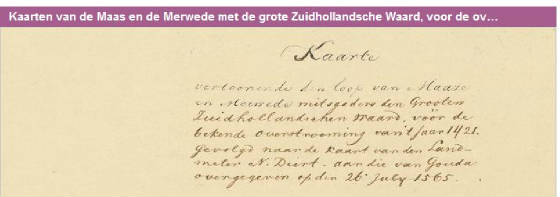 Kaarten van de Maas en de Merwede met de grote Zuidhollandsche Waard, voor de ov...
Kaarte
vertoonende den loop van Maaze
en Merwede mitsgaders den Grooten
Zuidhollandschen Waard, voor de
bekende overstrooming van't Jaar 1421.
gevolgd naar de kaart van den Land-
meter N. Dert. aan die van Gouda
overgegeven op den 26 July 1565.